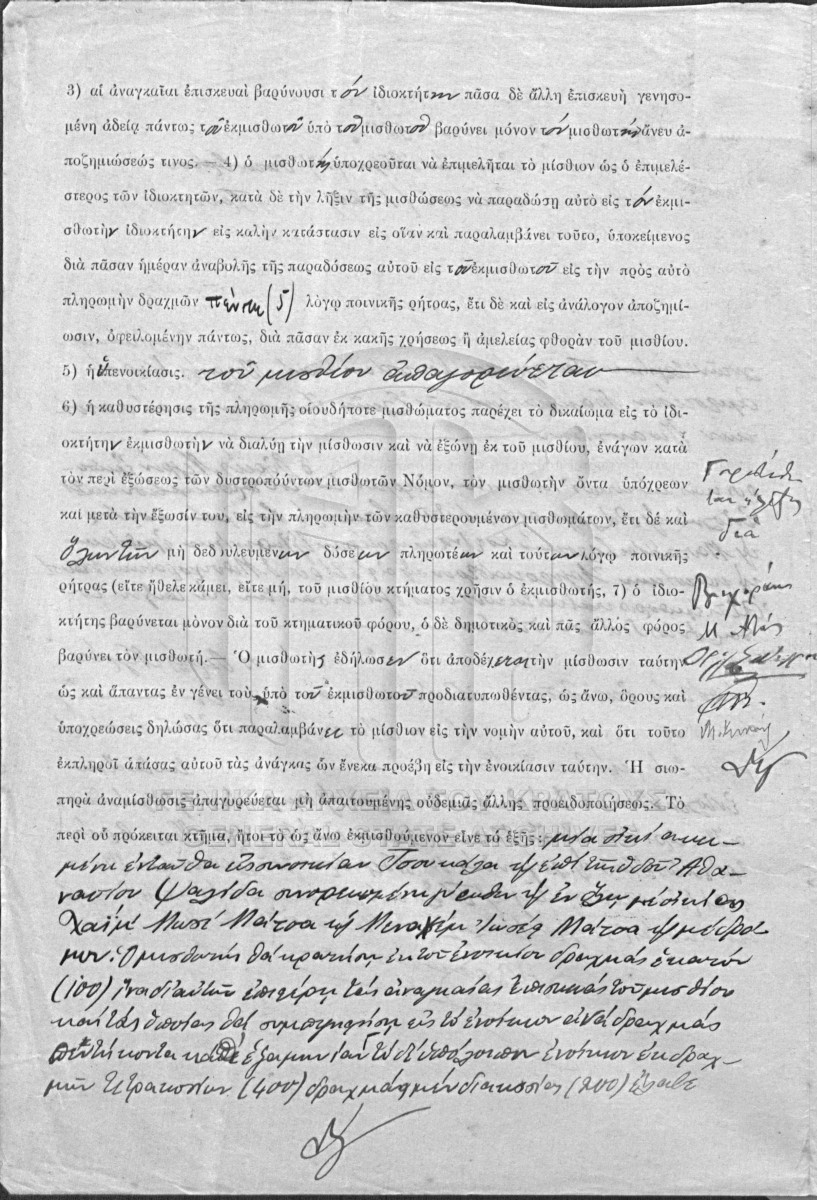 3) αἱ ἀναγκαῖαι ἐπισκευαὶ βαρύνουσι τὸν ἰδιοκτήτην πᾶσα δὲ ἄλλη ἐπισκευὴ γενησο-
μένη ἀδείᾳ πάντως τοῦ ἐκμισθωτοῦ ὑπὸ τοῦ μισθωτοῦ βαρύνει μόνον τὸν μισθωτὴν ἄνευ ἀ-
ποζημιώσεώς τινος. — 4) ὁ μισθωτὴς ὑποχρεοῦται νὰ ἐπιμελῆται τὸ μίσθιον ὡς ὁ ἐπιμελέ-
στερος τῶν ἰδιοκτητῶν, κατὰ δὲ τὴν λῆξιν τῆς μισθώσεως νὰ παραδώσῃ αὐτὸ εἰς τὸν ἐκμι-
σθωτὴν ἰδιοκτήτην εἰς καλὴν κατάστασιν εἰς οἵαν καὶ παραλαμβάνει τοῦτο, ὑποκείμενος
διὰ πᾶσαν ἡμέραν ἀναβολῆς τῆς παραδόσεως αὐτοῦ εἰς τοῦ ἐκμισθωτοῦ εἰς τὴν πρὸς αὐτὸ
πληρωμὴν δραχμῶν πέντε (5) λόγῳ ποινικῆς ρήτρας, ἔτι δὲ καὶ εἰς ἀνάλογον ἀποζημί-
ωσιν, ὀφειλομένην πάντως, διὰ πᾶσαν ἐκ κακῆς χρήσεως ἢ ἀμελείας φθορὰν τοῦ μισθίου.
5) ἡ ὑπενοικίασις. τοῦ μισθίου ἀπαγορεύεται
6) ἡ καθυστέρησις τῆς πληρωμῆς οἱουδήποτε μισθώματος παρέχει τὸ δικαίωμα εἰς τὸ ἰδι-
οκτήτην ἐκμισθωτὴν νὰ διαλύῃ τὴν μίσθωσιν καὶ νὰ ἐξώνῃ ἐκ τοῦ μισθίου, ἐνάγων κατὰ
τὸν περὶ ἐξώσεως τῶν δυστροπούντων μισθωτῶν Νόμον, τὸν μισθωτὴν ὄντα ὑπόχρεων
καὶ μετὰ τὴν ἔξωσίν του, εἰς τὴν πληρωμὴν τῶν καθυστερουμένων μισθωμάτων, ἔτι δὲ καὶ
ὅλων τῶν μὴ δεδουλευμένων δόσεων πληρωτέων καὶ τούτων λόγῳ ποινικῆς
ρήτρας (εἴτε ἤθελε κάμει, εἴτε μή, τοῦ μισθίου κτήματος χρῆσιν ὁ ἐκμισθωτής, 7) ὁ ἰδιο-
κτήτης βαρύνεται μόνον διὰ τοῦ κτηματικοῦ φόρου, ὁ δὲ δημοτικὸς καὶ πᾶς ἄλλὸς φόρος
βαρύνει τὸν μισθωτή. — Ὁ μισθωτὴς ἐδήλωσεν ὅτι ἀποδέχεται τὴν μίσθωσιν ταύτην
ὡς καὶ ἅπαντας ἐν γένει τοὺς ὑπὸ τοῦ ἐκμισθωτοῦ προδιατυπωθέντας, ὡς ἄνω, ὅρους καὶ
ὑποχρεώσεις δηλώσας ὅτι παραλαμβάνει τὸ μίσθιον εἰς τὴν νομὴν αὐτοῦ, καὶ ὅτι τοῦτο
ἐκπληροῖ ἁπάσας αὐτοῦ τὰς ἀνάγκας ὧν ἕνεκα προέβη εἰς τὴν ἐνοικίασιν ταύτην. Ἡ σιω-
πηρὰ ἀναμίσθωσις ἀπαγυρεύεται μὴ ἀπαιτουμένης οὐδεμιᾶς ἄλλης προειδοποιήσεως. Τὸ
περὶ οὗ πρόκειται κτῆμα, ἤτοι τὸ ὡς ἄνω ἐκμισθούμενον εἶνε τὸ ἑξῆς: μία οἰκία κει-
μένη ἐνταῦθα συνοικίαν Τσουκάλα καὶ ἐπὶ τῆς ὁδοῦ Ἀθα-
νασίου Ψαλίδα συνορευομένη μὲ οἰκίας
Χαϊμ Μωσέ Μάτσα καὶ Μεναχέμ Ἰωσὲφ Μάτσα καὶ μὲ δρό-
μον. Ὁ μισθωτὴς θὰ κρατήσῃ ἐκ τοῦ ἐνοικίου δραχμὰς ἑκατὸν
(100) ἵνα δι' αὐτῶν ἐπιφέρῃ τὰς ἀναγκαίας ἐπισκευὰς τοῦ μισθίου
καὶ τὰς ὁποίας θὰ συμψηφίσῃ εἰς τὸ ἐνοίκιον ἀνὰ δραχμὰς
πεντήκοντα καθ' ἑξαμηνίαν τὸ δὲ ὑπόλοιπον ἐνοίκιον ἐκ δραχ-
μῶν τετρακοσίων (400) δραχμὰς μὲν διακοσίας (200) ἔλαβε
ΓΕΝΙΚΑ ΑΡΧΕΙΑ ΤΟΥ ΚΡΑΤΟΥΣ
GENERAL STATE ARCHIVES